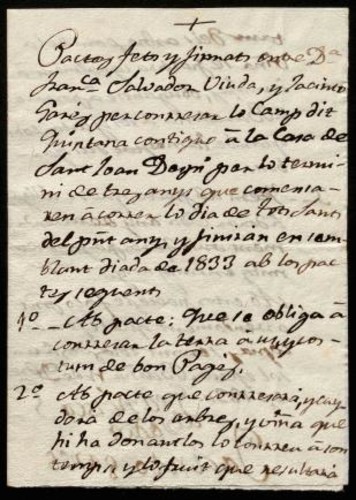 +
Pactes fets y firmats entre Da.
Franca. Salvador Viuda, y Jacinto
per conrrerar lo Camp dit
Quintana contiguo á la Casa de
Sant Joan per lo termi-
ni de tres anys que comensa-
ren á correr lo dia de Tots Sants
del pnt. any, y finirán en sem-
blant diada de 1833 ab los pac-
tes seguents
1º. Ab pacte: Que se obliga á
conrrerar la terra á us y cos-
tum de bon Pagés.
2º. Ab pacte que conrrerará, y cuy-
dará de los arbres, y viña que
hi ha donantlos lo conrreu á son
temps, y lo fruit que resultará